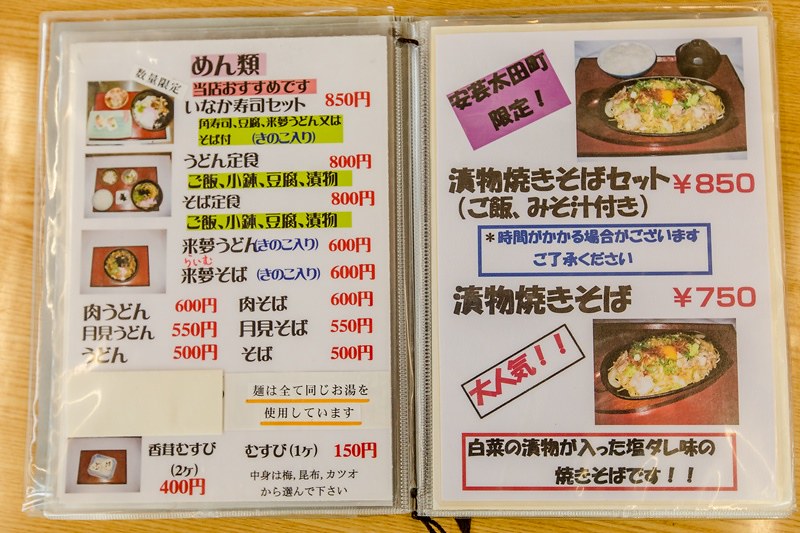 数量限定
めん類
当店おすすめです
いなか寿司セット 850円
角寿司、豆腐、来夢うどん又は
そば付 (きのこ入り)
うどん定食 800円
ご飯、小鉢、豆腐、漬物
そば定食 800円
ご飯、小鉢、豆腐、漬物
来夢うどん(きのこ入り) 600円
らいむ
来夢そば (きのこ入り) 600円
肉うどん 600円 肉そば 600円
月見うどん 550円 月見そば 550円
うどん 500円 そば 500円
麺は全て同じお湯を
使用しています
香茸むすび むすび(1ヶ) 150円
(2ヶ)
400円
中身は梅,昆布,カツオ
から選んで下さい
安芸太田町
限定！
漬物焼きそばセット ￥850
(ご飯、みそ汁付き)
＊時間がかかる場合がございます
ご了承ください
漬物焼きそば ￥750
大人気！！
白菜の漬物が入った塩ダレ味の
焼きそばです！！